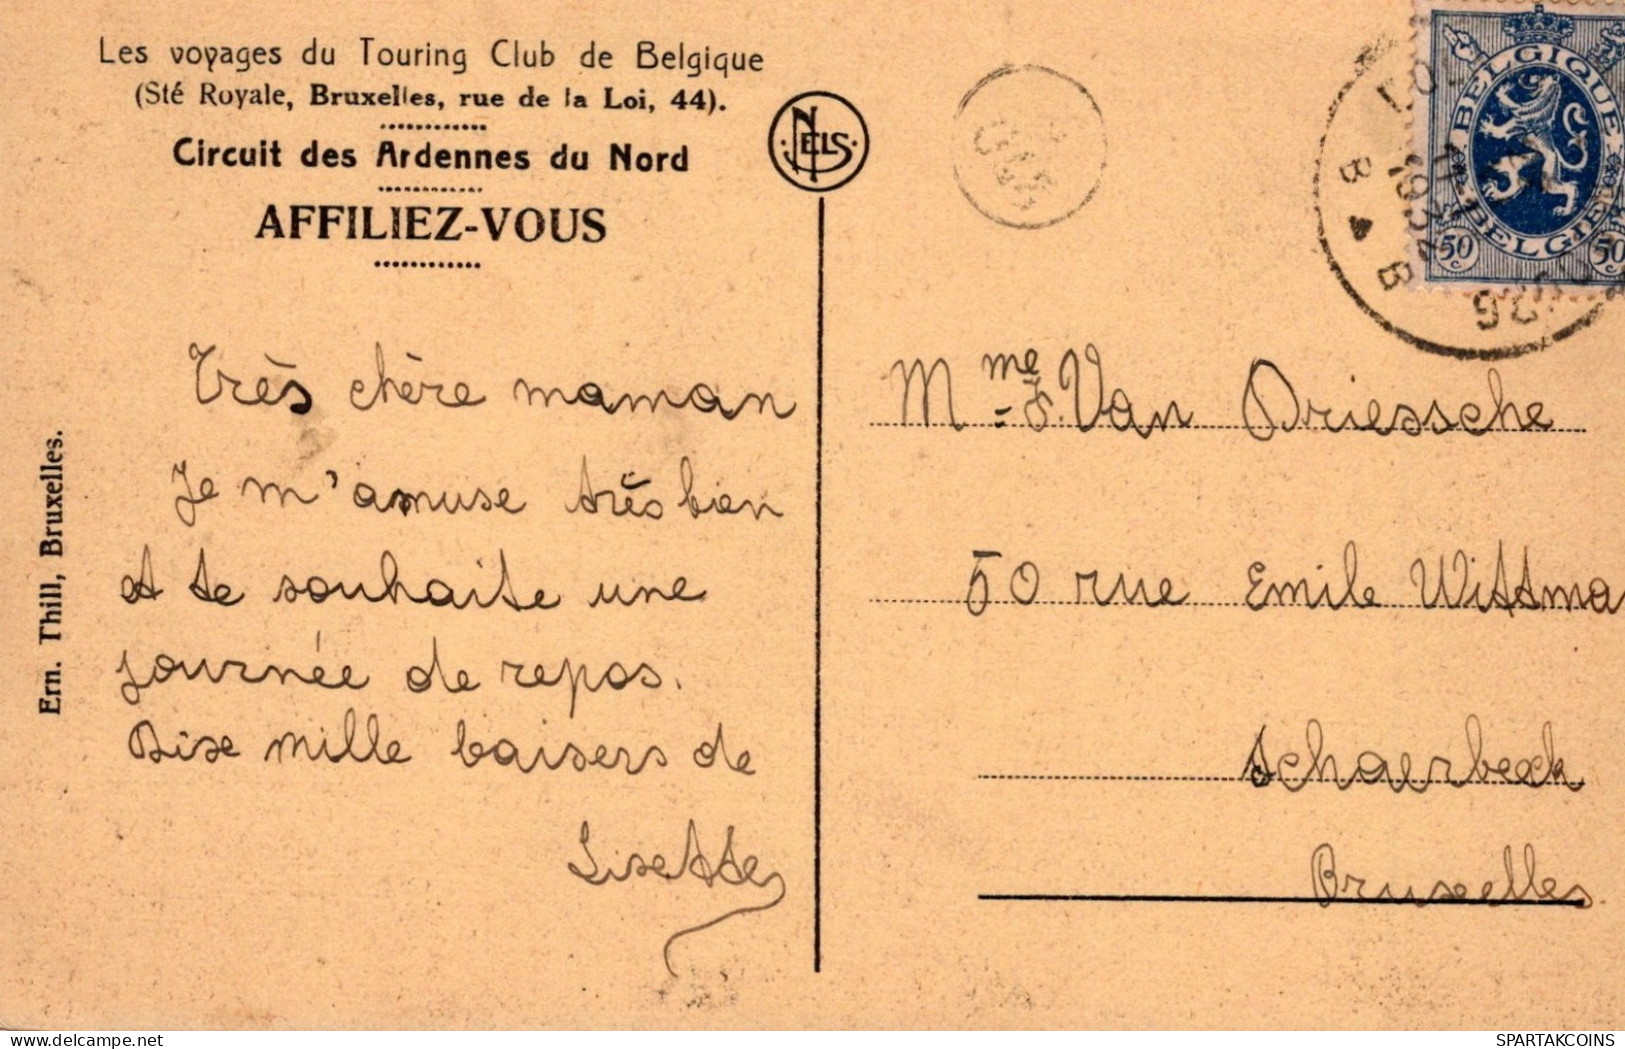 Les voyages du Touring Club de Belgique
(Sté Royale, Bruxelles, rue de la Loi, 44).
Circuit des Ardennes du Nord
AFFILIEZ-VOUS
NELS
Ern. Thill, Bruxelles.
Très chère maman
Je m'amuse très bien
et te souhaite une
journée de repos.
Dixe mille baisers de
Lisette
BELGIQUE
BELGIE
50c 50c
1932
B B
26
Mme F. Van Driessche
50 rue Emile Wittma
Schaerbeek
Bruxelles
SPARTAKCOINS
delcampe.net